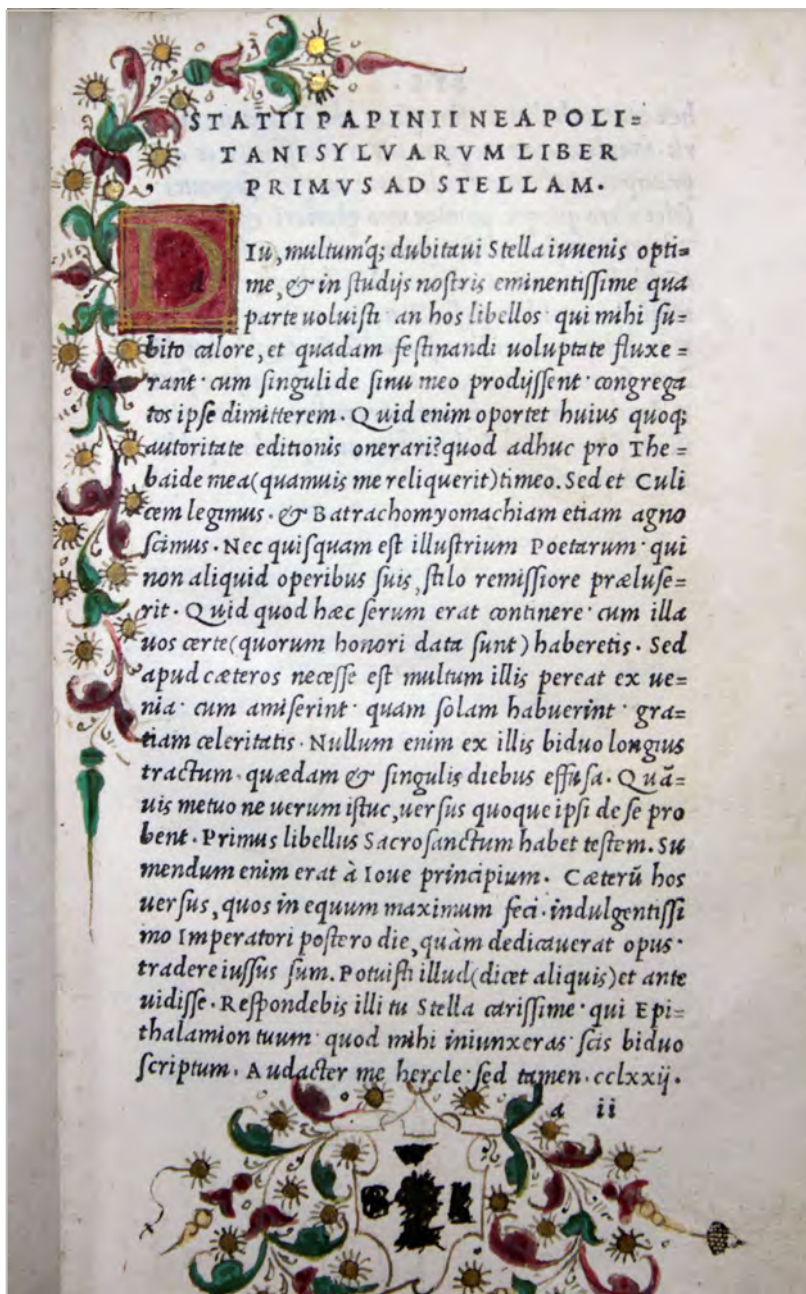 STATII PAPINII NEAPOLI=
TANI SYLVARVM LIBER
PRIMVS AD STELLAM.
DIu, multumq́; dubitaui Stella iuuenis opti=
me, & in studijs nostris eminentissime qua
parte uoluisti an hos libellos qui mihi su=
bito calore, et quadam festinandi uoluptate fluxe=
rant· cum singuli de sinu meo prodijssent· congrega
tos ipse dimitterem. Quid enim oportet huius quoq;
autoritate editionis onerari? quod adhuc pro The=
baide mea (quamuis me reliquerit) timeo. Sed et Culi
cem legimus· & Batrachomyomachiam etiam agno
scimus. Nec quisquam est illustrium Poetarum· qui
non aliquid operibus suis, stilo remissiore præluse=
rit. Quid quod hæc serum erat continere· cum illa
uos certe (quorum honori data sunt) haberetis. Sed
apud cæteros necesse est multum illis pereat ex ue=
nia· cum amiserint· quam solam habuerint· gra=
tiam celeritatis. Nullum enim ex illis biduo longius
tractum. quædam & singulis diebus effusa. Quã=
uis metuo ne uerum istuc, uersus quoque ipsi de se pro
bent. Primus libellus Sacrosanctum habet testem. Su
mendum enim erat à Ioue principium. Cæterũ hos
uersus, quos in equum maximum feci. indulgentissi
mo Imperatori postero die, quàm dedicauerat opus·
tradere iussus sum. Potuisti illud (dicet aliquis) et ante
uidisse. Respondebis illi tu Stella carissime· qui Epi=
thalamion tuum· quod mihi iniunxeras· scis biduo
scriptum. Audacter me hercle· sed tamen. cclxxij.
a ii